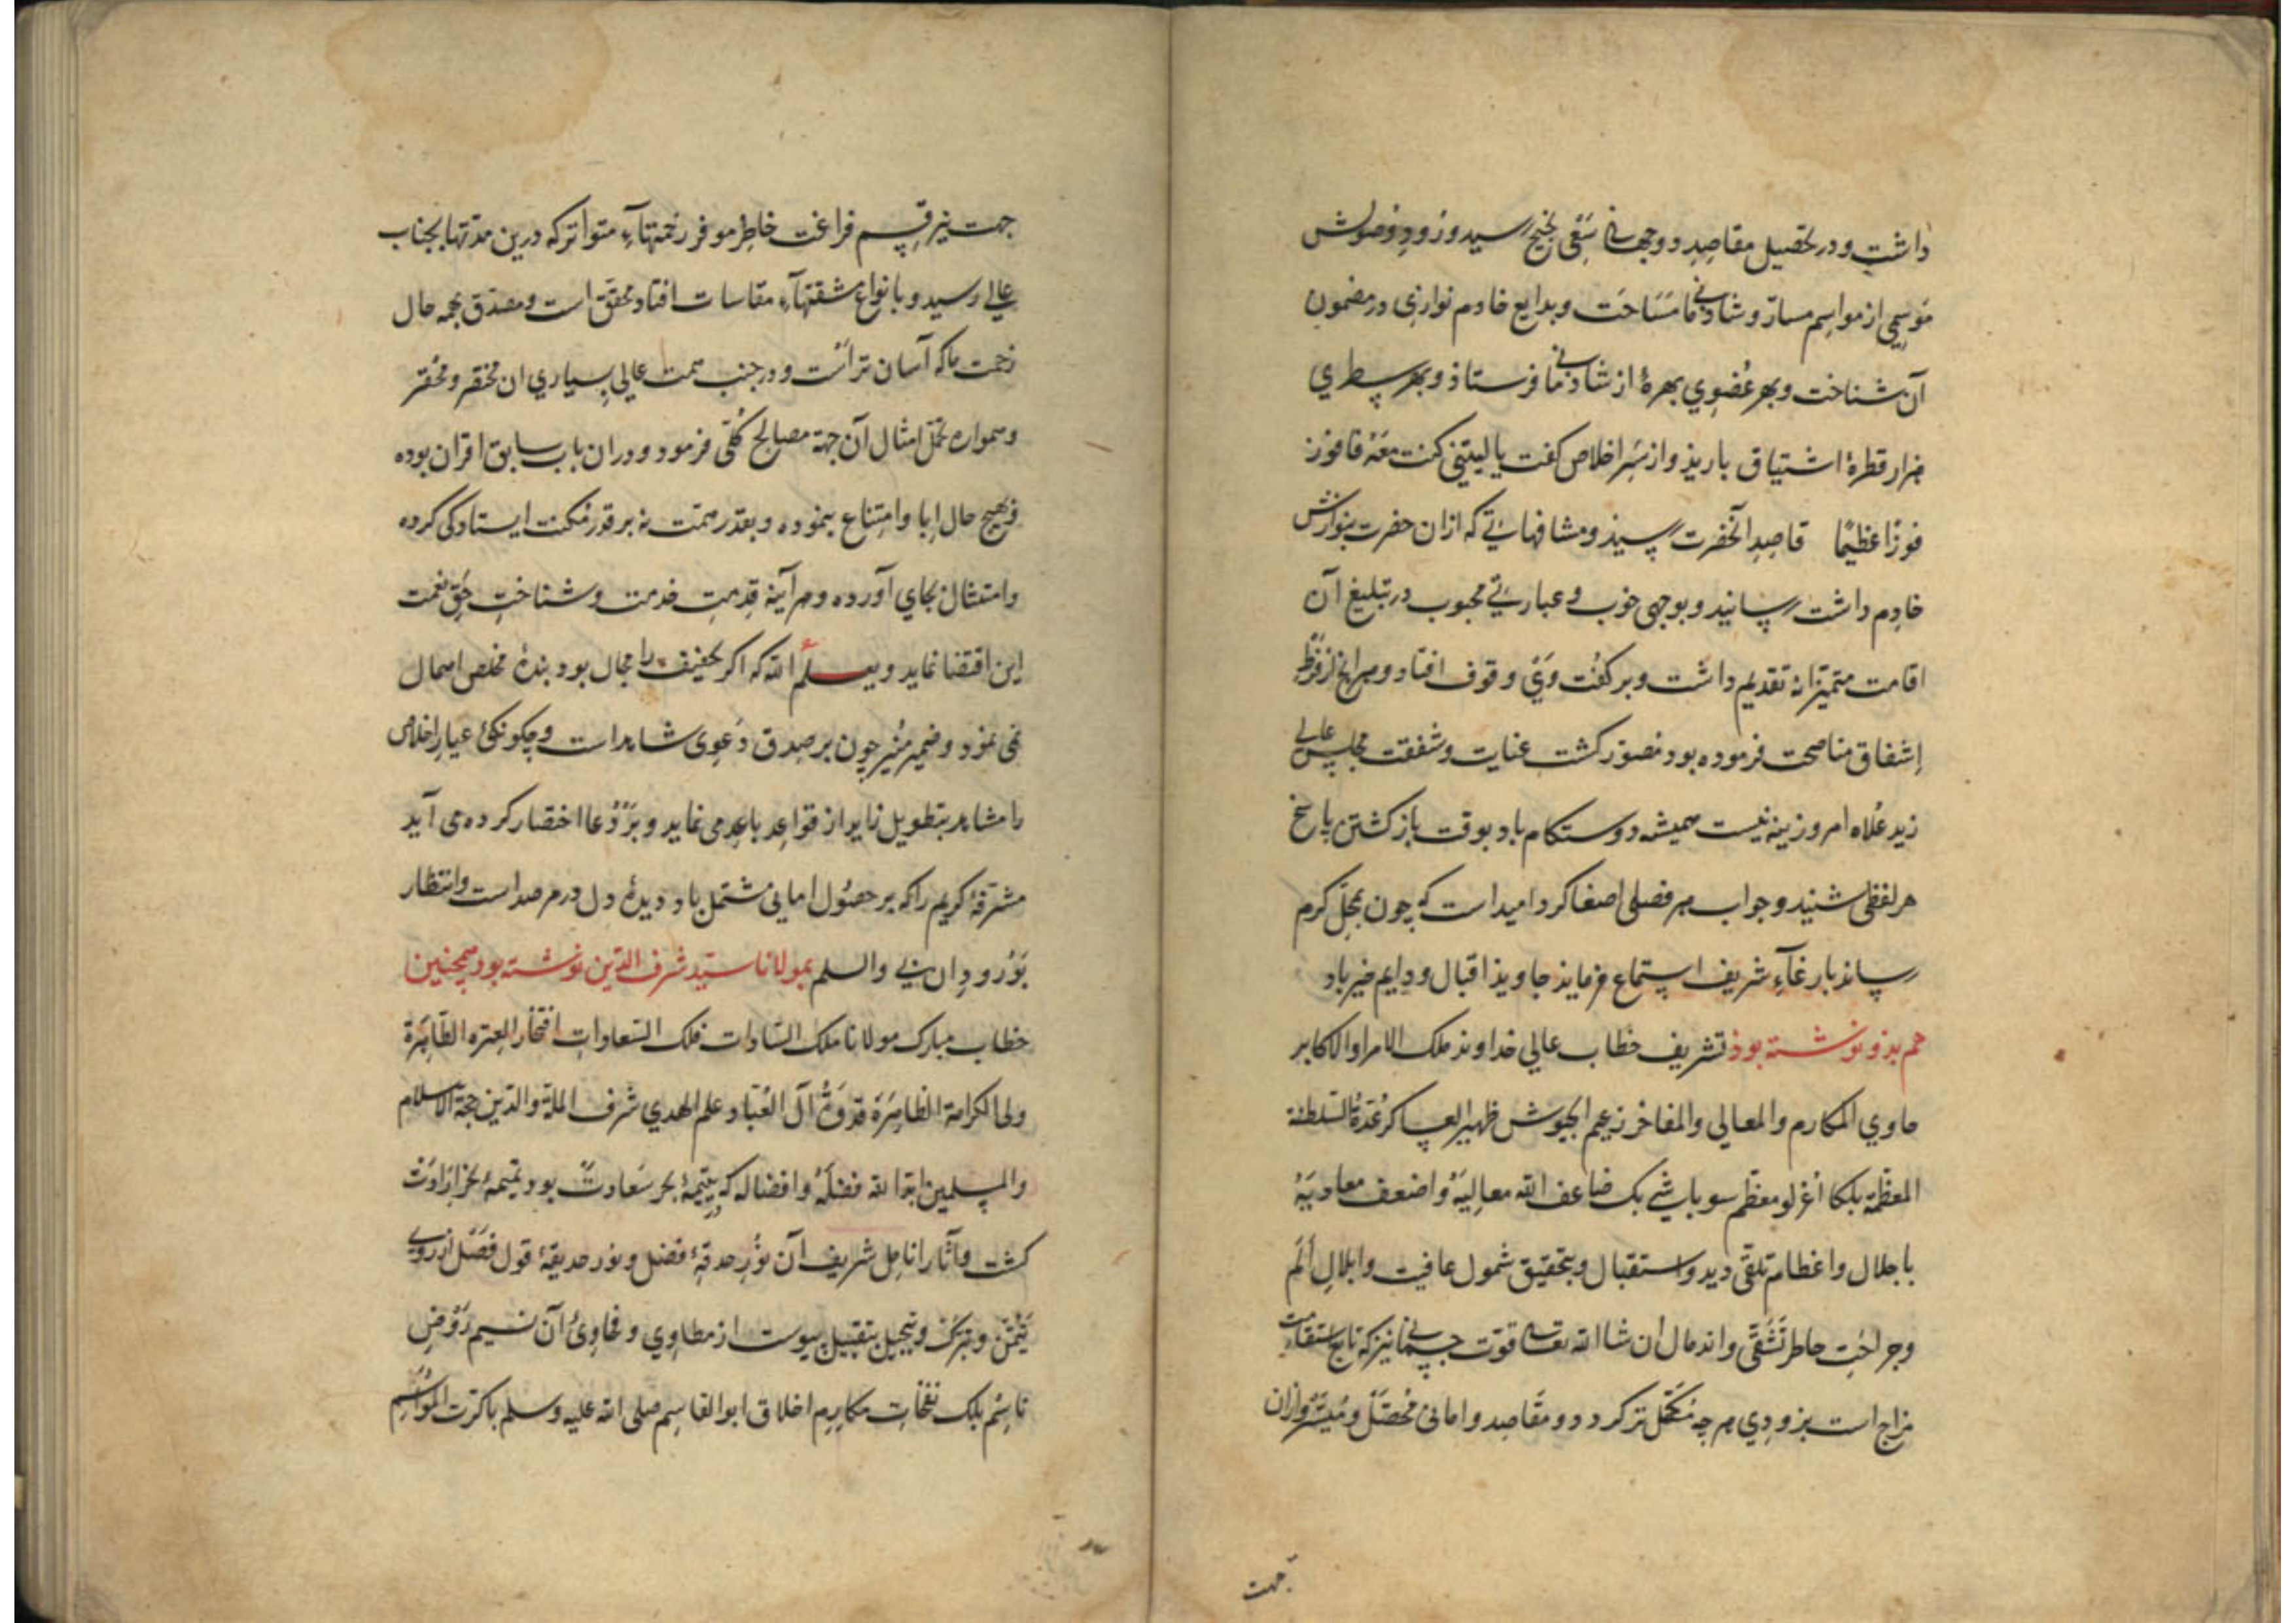 داشت و در تحصیل مقاصد دوجهانی سَعْی نجیح رسید و زود وصولش
مَوْسِمی از مواسِم مسارّ و شادمانی شناخت و بدایع خادم نوازی در مضمون
آن شناخت و بهر عُضوی بهرهٔ از شادمانی فرستاذ و بهر سطری
هزار قطرهٔ اشتیاق بارید و از سَرِ اخلاص گفت یا لیتنی کنت معهُ فافوز
فوزًا عظیمًا قاصدِ آنحضرت رسید و مشافهاتی که ازان حضرت بنوازش
خادِم داشت رسانید و بوجهی خوب و عبارتی محبوب در تبلیغ آن
اقامت متمیّزانه تقدیم داشت و بر گفت وَیْ وقوف افتاد و هرانچ از فَرْطِ
اِشفاق مناصحت فرموده بود مُصوّر گشت عنایت و شفقت مجلس عالی
زید عُلاه امروزینه نیست همیشه دوستکام باد بوقت بازگشتن پاسخ
هر لفظی شنید و جواب هر فصلی اصغا کرد امید است که چون بمحلّ کرم
رساند بارغآءِ شریف استماع فرماید جاوید اقبال و دایم خیر باد
هم بذو نوشته بوذ تشریف خطاب عالی خداوند ملک الامرا و الاکابر
حاوی المکارم و المعالی و المفاخر زعیم الجیوش ظهیر العساکر عُدّة السلطنة
المعظّمه بلکا اُغرلو معظّم سوباشی بک ضاعف الله معالیَهُ و اضعف معادیَهُ
باجلال و اعظام تلقّی دید و استقبال و بتحقیق شمول عافیت و ابلالِ اَلَم
و جراحتِ خاطر تَشَفّی و اندمال ان شا الله تعالی قوّت جسمانی نیز که تابع استقامت
مزاج است بزودی هرچه مکمّل‌تر گردد و مقاصد و امانی مُحصّل و مُیسّر و ازان
جهت
جهت نیز فراغت خاطر موفّر زحمتهآءِ متواتر که درین مدّتها بجناب
عالی رسید و بانواعِ مشقتهآءِ مقاسات افتاد محقّق است و مصدّق بهمه حال
زحمت ما که آسان‌تر است و در جنب همّت عالی بسیاری ان مختصر و محقّر
و همواره تحمّل امثال آن جهة مصالح کُلّی فرمود و دران باب سابق اقران بوده
و بهیچ حال اِبا و امتناع ننموده و بقدر همّت نه بر قدر مُکنت ایستادکی کرده
و امتثال بجای آورده و هرآینه قِدمتِ خدمت و شناختِ حَقّ نعمت
این اقتضا نماید و یعلم الله که اگر تخفیف را مجال بود بندهٔ مخلص اهمال
نمی نمود و ضمیر مُنیر چون بر صدق دَعوی شاهد است و چگونگیٔ عیارِ اخلاص
را مشاهد بتطویل زاید از قواعد باعدمی نماید و بر دُعا اختصار کرده می آید
مشرّفهٔ کریم را که بر حصول امانی مُشتمل باد دیدهٔ دل در مرصد است و انتظار
بوُرودِ ان نی والسلم بمولانا سیّد شرف الدّین نوشته بود همچنین
خطاب مبارک مولانا ملک السّادات فلک السّعادات افتخار العتره الطّاهِرة
ولی الکرامة الظاهِرَة قدوَةُ آل العُبّاد علم الهدی شرف الملة و الدّین حجة الاسلام
والمسلمین ابّد الله فضلَهُ و افضاله که یتیمهٔ بحر سَعادتْ بود تمیمهٔ
گشت و آثار انامِل شریف آن نُوْرِ حدقهٔ فضل و نور حدیقهٔ قول فَصْل از روی
تیمّن و تبرّک و تبجیل بتقبیل پیوست از مطاوی و فحاویٔ آن نسیم رَوْضِ
ناسِم بلک نفحاتِ مکارم اخلاق ابو القاسِم صلی الله علیه وسلم باکرت المَواسِم